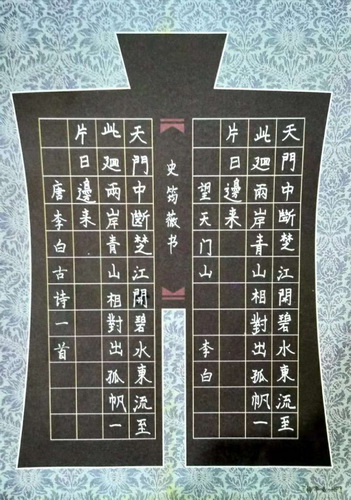 天門中斷楚江開碧水東流至
此迴兩岸青山相對出孤帆一
片日邊来
望天门山 李白
史筠藏书
天門中斷楚江開碧水東流至
此迴兩岸青山相對出孤帆一
片日邊来
唐李白古诗一首